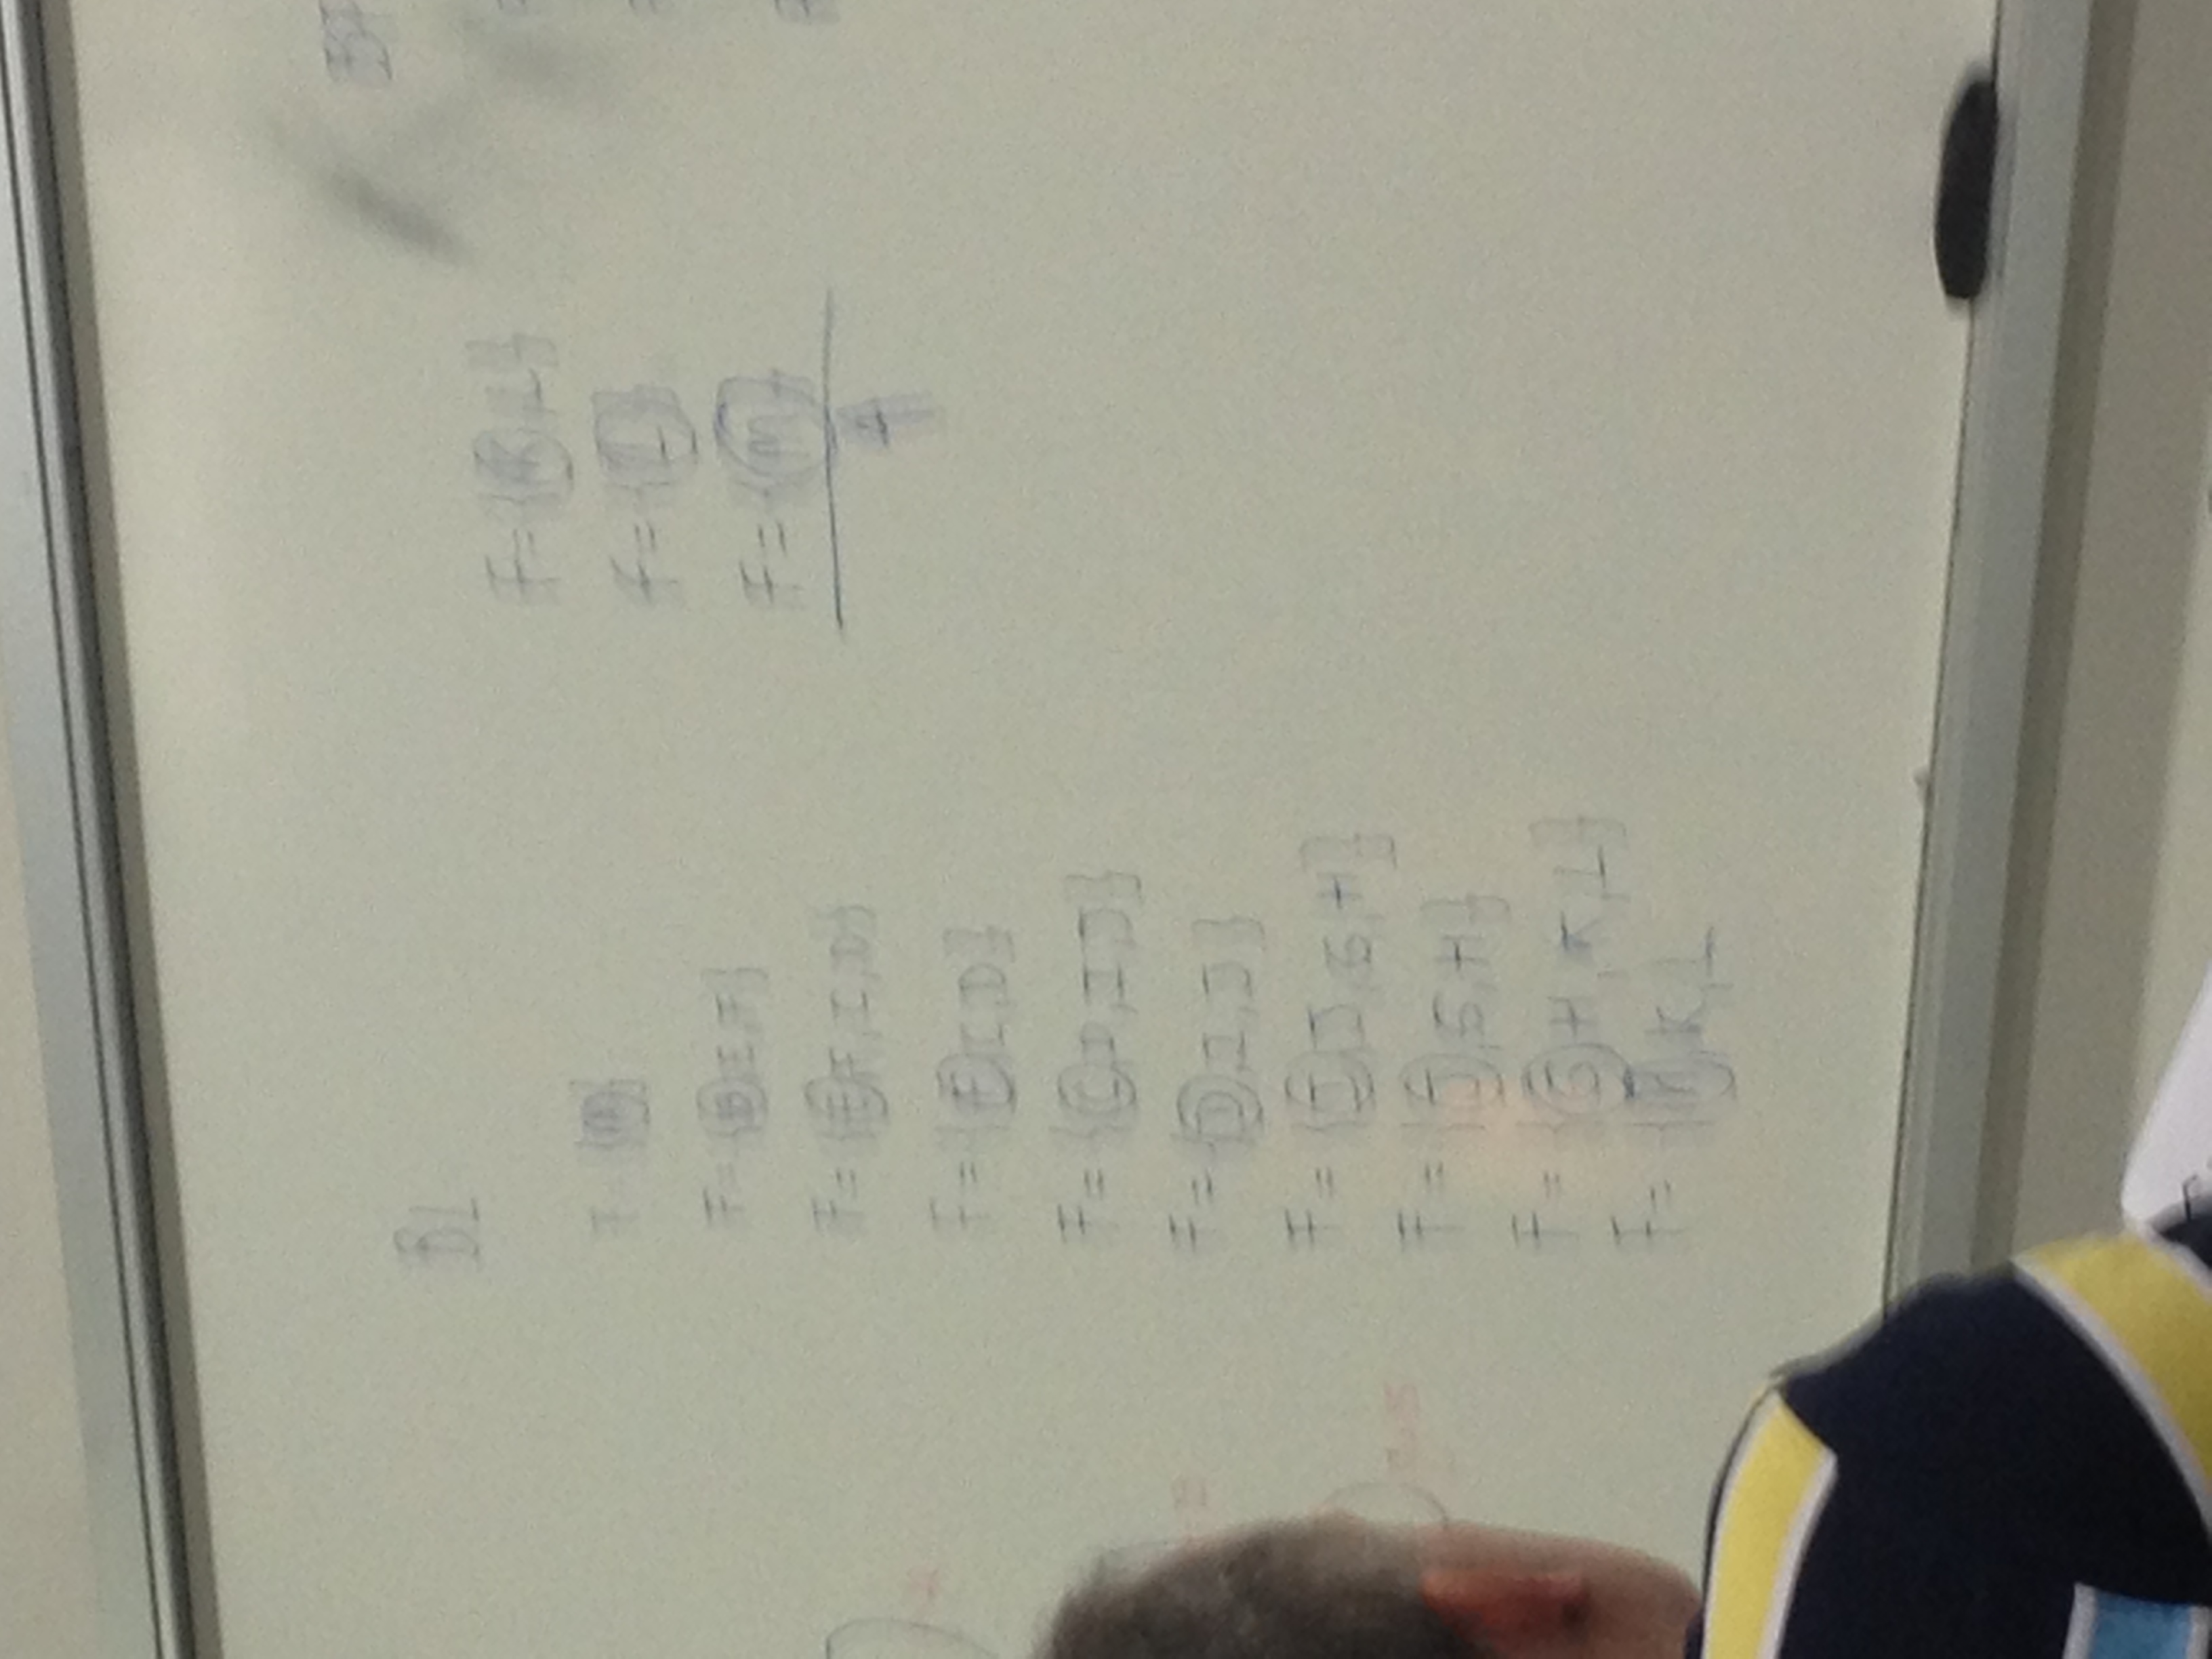 B1
F = {B, E, F}
F = {E, F, I, D}
F = {F, I, D}
F = {C, D, I, J}
F = {D, I, J}
F = {I, J, G, H}
F = {J, G, H}
F = {G, H, K, L}
F = {H, K, L
F = {K, L}
F = {L}
F = {M}